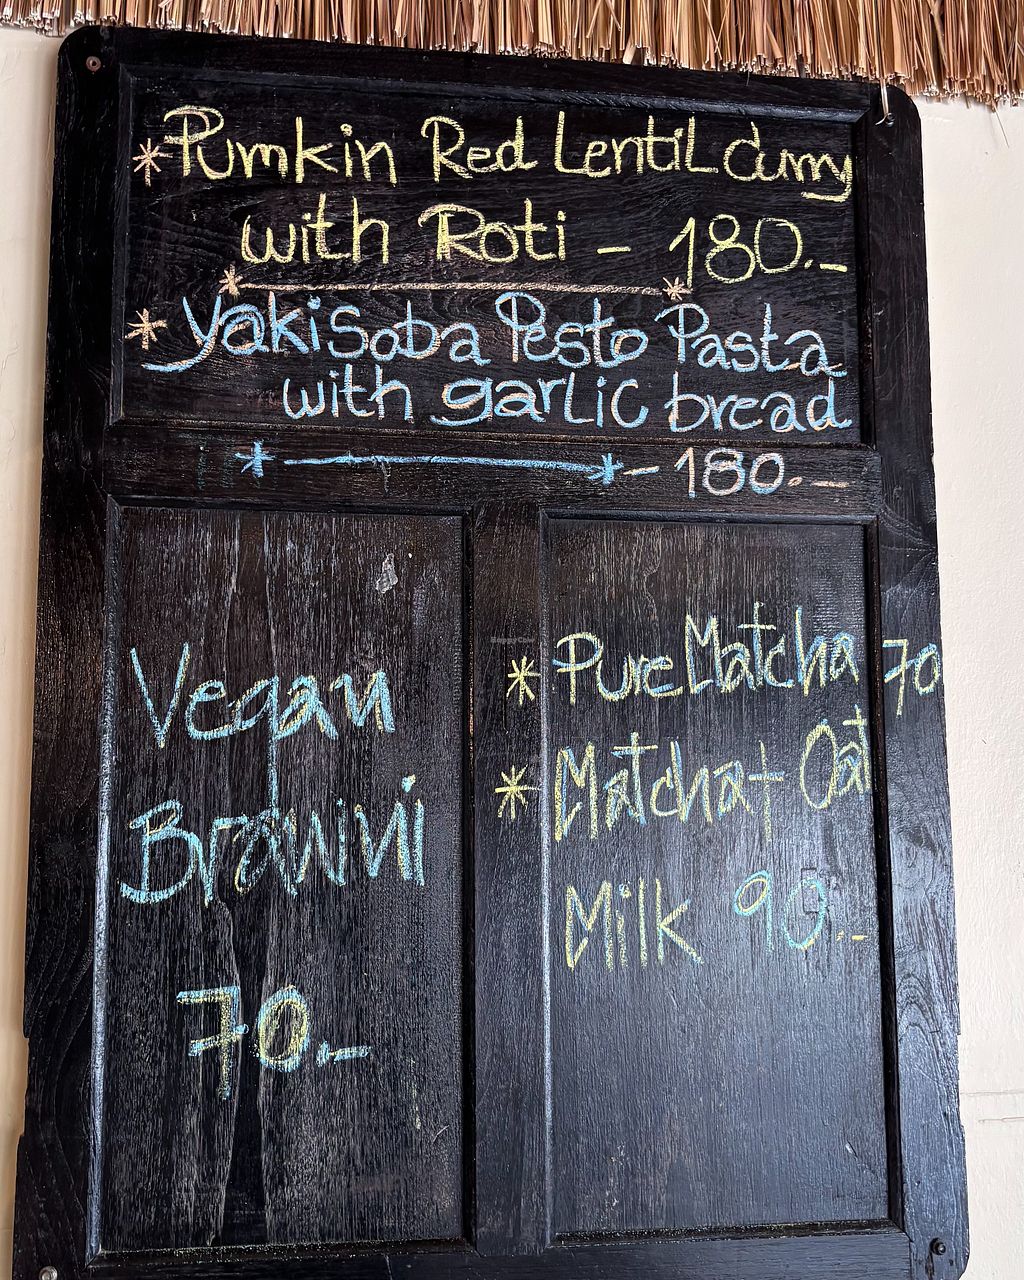 *Pumkin Red Lentil Curry
with Roti - 180.-
* Yakisoba Pesto Pasta
with garlic bread
- 180.-
Vegan
Brawini
70.-
* Pure Matcha 70
* Matcha + Oat
Milk 90.-